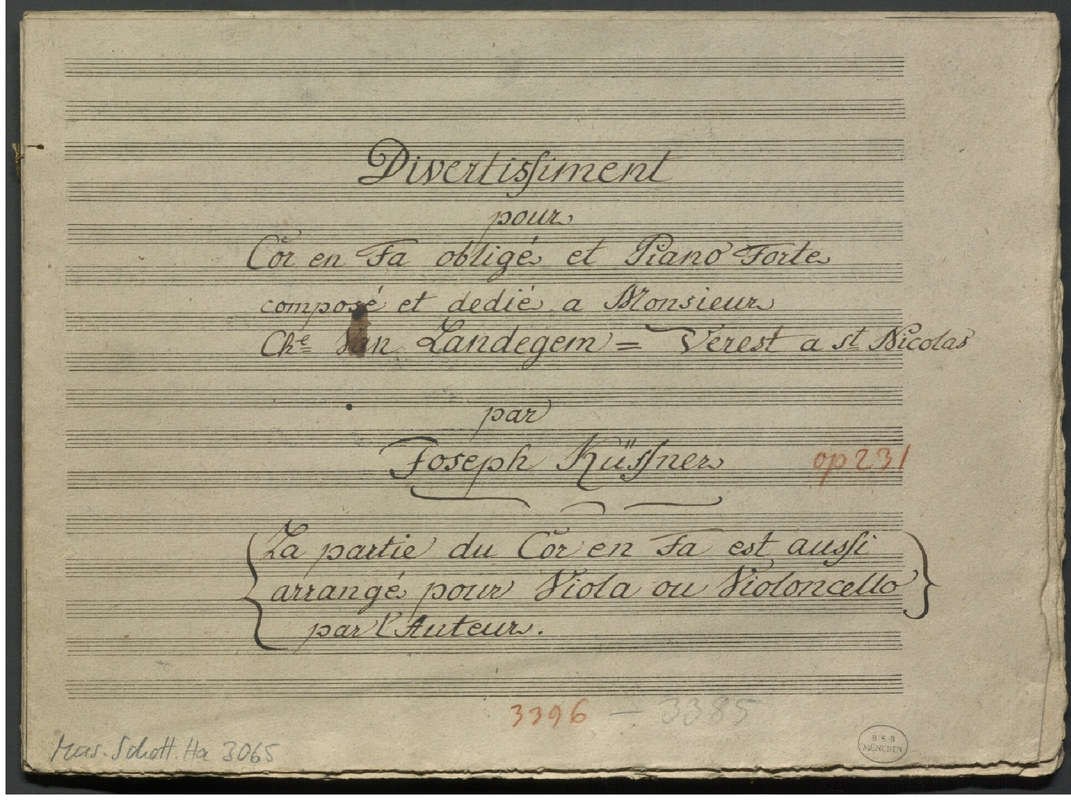 Divertissiment
pour
Cor en Fa obligé et Piano Forte
composé et dedié a Monsieur
Che Van Landegem = Verest a st Nicolas
par
Joseph Küssner
op 231
La partie du Cor en Fa est aussi
arrangé pour Viola ou Violoncello
par l'Auteur.
3396 — 3385
Mus. Schott. Ha 3065
B·S·B
MÜNCHEN